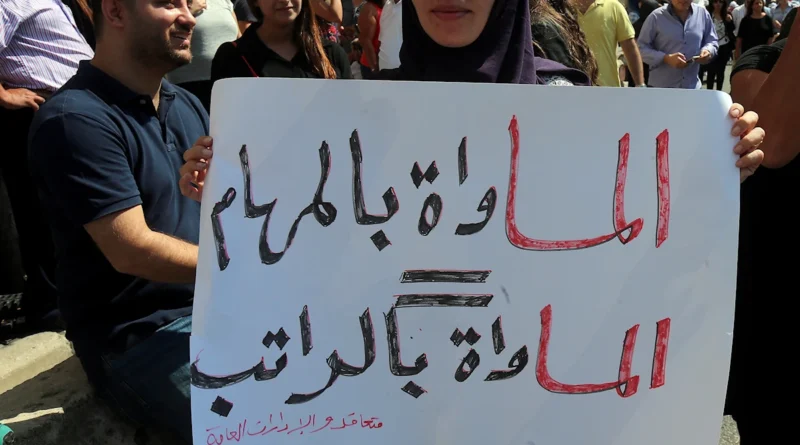 المساواة بالمهام
=
المساواة بالراتب
متعاقدو الإدارات العامة